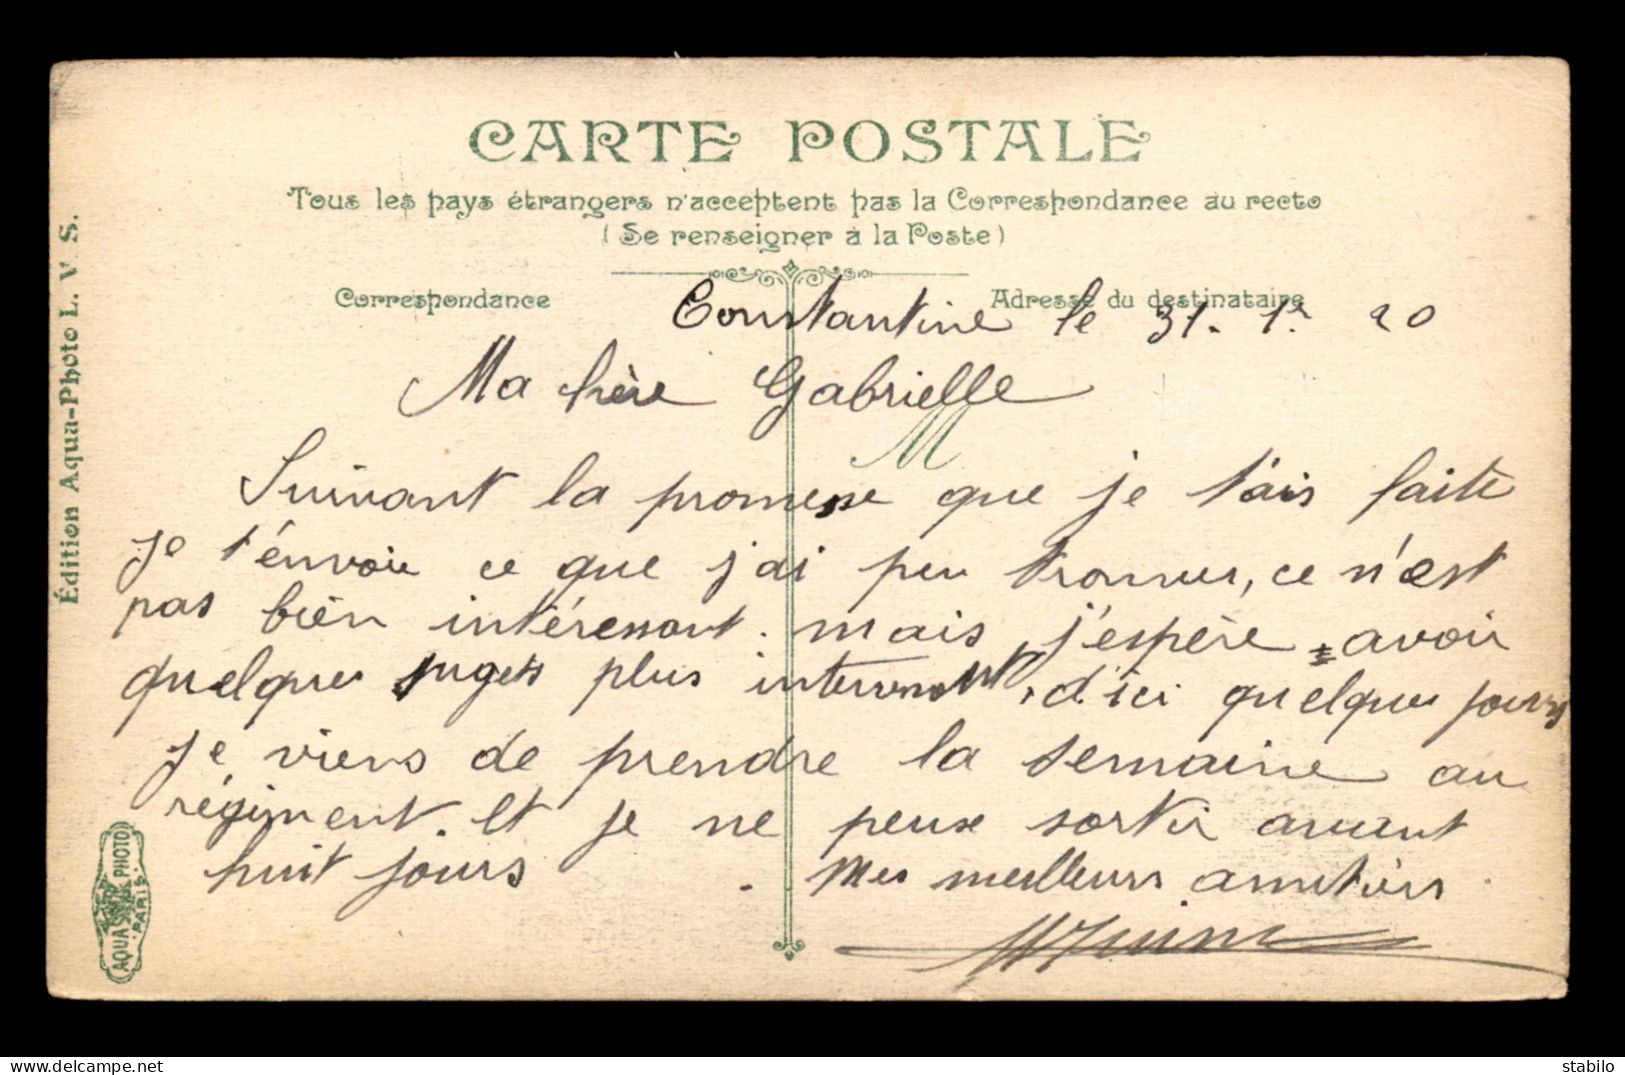 CARTE POSTALE
Tous les pays étrangers n'acceptent pas la Correspondance au recto
(Se renseigner à la Poste)
Correspondance
Adresse du destinataire
Constantine le 31. 1. 20
Ma chère Gabrielle
M
Suivant la promesse que je t'ais faite
je t'envoie ce que j'ai peu trouver, ce n'est
pas bien intéressant. mais j'espère avoir
quelques sugets plus d'ici quelques jours
je viens de prendre la semaine au
régiment. et je ne peux sortir avant
huit jours
Mes meilleurs amitiers
Édition Aqua-Photo L. V. S.
AQUA PHOTO
PARIS
delcampe.net
stabilo